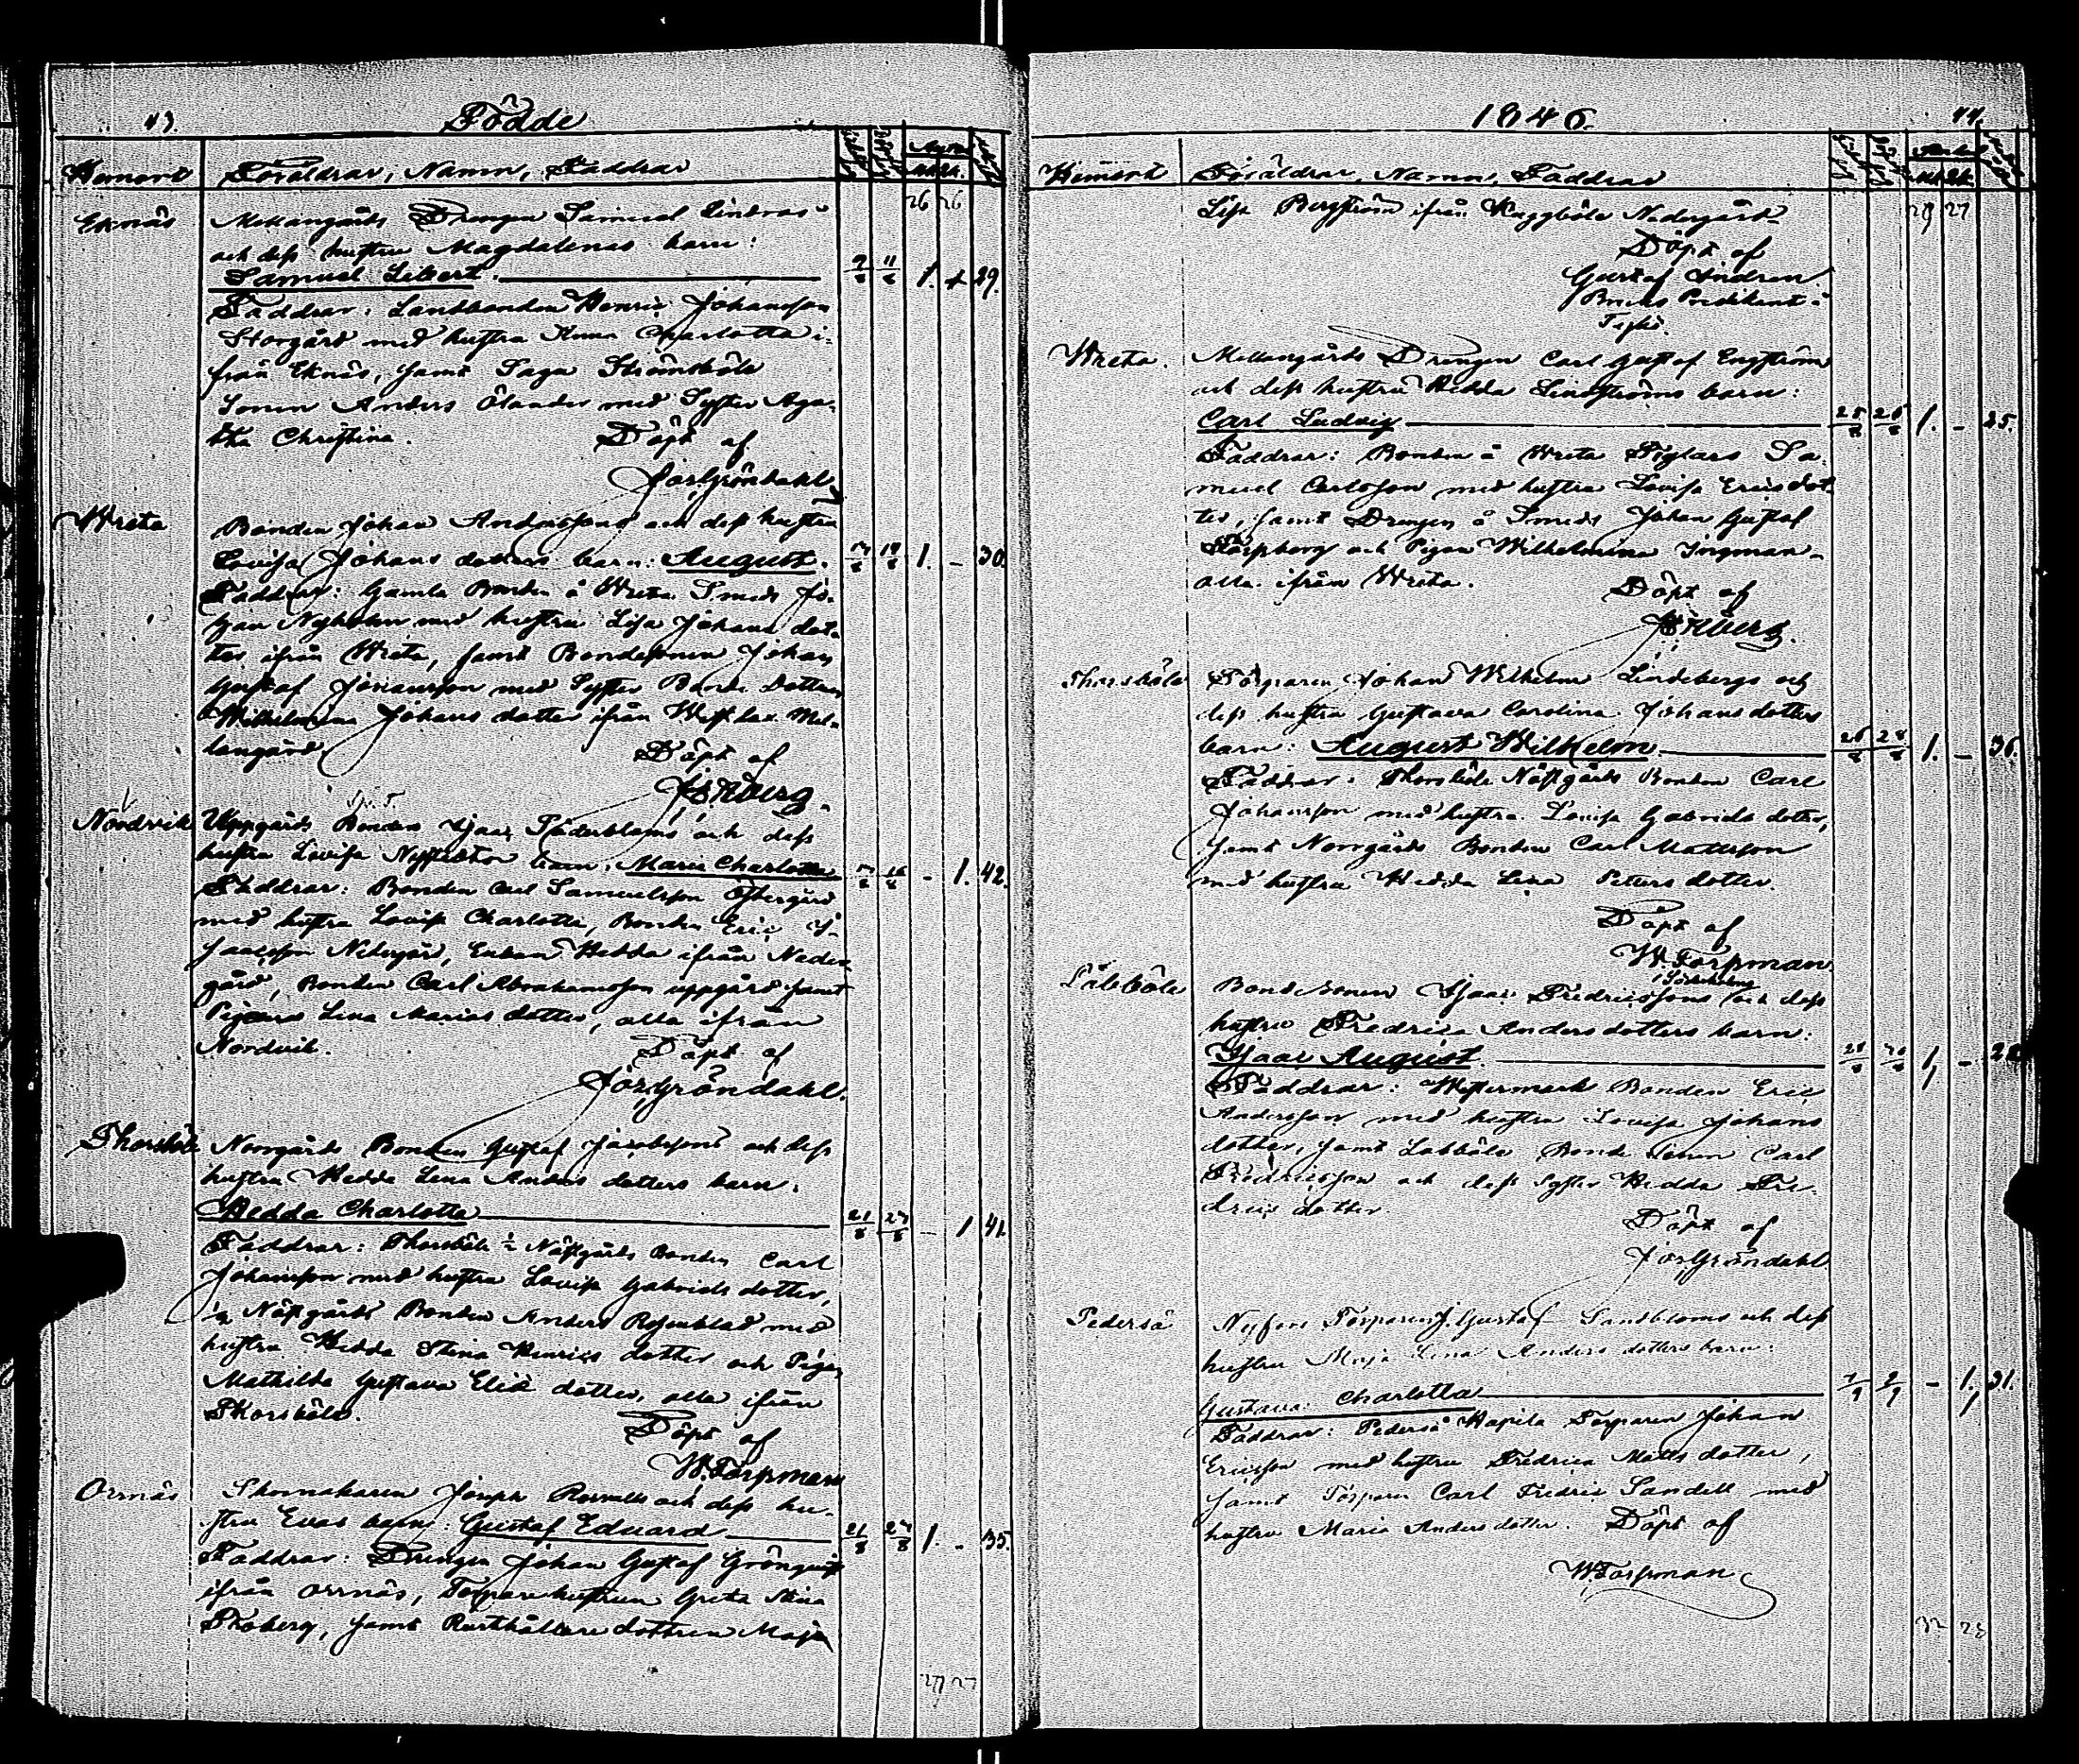 43.
Födde
Hemort Föräldrar, Namn, Faddrar
26 26
Eknäs Mellangårds Drengen Samuel Lindros
och dess hustru Magdalenas barn:
Samuel Libert. 1. + 29.
Faddrar: Landbonden Henric Johansson
Storgård med hustru Anna Charlotta i-
från Eknäs, samt Saga Strömsböle
Sonen Anders Ölander med Syster Aga-
tha Christina. Döpt af
Jos. Gröndahl
Wreta Bonden Johan Anderssons och dess hustru
Lovisa Johans dotters barn: August. 1. - 30.
Faddrar: Gamla Bonden å Wreta Smeds Jo-
han Nyholm med hustru Lisa Johans dot-
ter ifrån Wreta, samt Bondesonen Johan
Gustaf Johansson med Syster Bonde Dottren
Wilhelmina Johans dotter ifrån Westlax Mel-
langård. Döpt af
Nordvik Uppgårds Bonden Isaac Söderbloms och dess
hustru Lovisa barn: Maria Charlotta - 1. 42.
Faddrar: Bonden Carl Samuelsson Östergård
med hustru Lovisa Charlotta, Bonden Eric I-
saacsson Nedergård, Enkan Hedda ifrån Neder-
gård, Bonden Carl Abrahamsson uppgård samt
Pigan Lena Marias dotter, alla ifrån
Nordvik. Döpt af
Jos. Gröndahl.
Thorsböle Norrgårds Bonden Gustaf Jacobssons och dess
hustru Hedda Lena Anders dotters barn:
Hedda Charlotta 21/8 - 1 41.
Faddrar: Thorsböle ½ Näsgårds Bonden Carl
Johansson med hustru Lovisa Gabriels dotter,
½ Näsgårds Bonden Anders Rosenblad med
hustru Hedda Stina Henrics dotter och Pigan
Mathilda Gustava Elis dotter, alla ifrån
Thorsböle. Döpt af
W. Forsman
Ornäs Skomakaren Joseph och dess hu-
stru Evas barn: Gustaf Eduard 21/8 1. - 35.
Faddrar: Drengen Johan Gustaf Grönqvist
ifrån Ornäs, Torparehustrun Greta Stina
Skoberg, samt Rusthållare dottren Maja
27
1846. 44.
Hemort Föräldrar, Namn, Faddrar
27
Lisa Bergström ifrån Kaggböle Nedergård
Döpt af
Gustaf Lindron.
Bruks Predikant i
Wreta. Mellangårds Drengen Carl Gustaf Engström
och dess hustru Hedda Lindströms barn:
Carl Ludvig 1. - 25.
Faddrar: Bonden å Wreta Siglars Sa-
muel Carlsson med hustru Lovisa Ericsdot-
ter, samt Drengen å Smeds Johan Gustaf
och Pigan Wilhelmina Ingman
alla ifrån Wreta. Döpt af
Thorsböle Torparen Johan Wilhelm Lindebergs och
dess hustru Gustava Carolina Johans dotters
barn: August Wilhelm 1. - 36.
Faddrar: Thorsböle Näsgårds Bonden Carl
Johansson med hustru Lovisa Gabriels dotter,
samt Norrgårds Bonden Carl Mattsson
med hustru Hedda Lena Petters dotter.
Döpt af
W. Forsman
Labböle Bondesonen Isaac Fredricssons och dess
hustru Fredrica Anders dotters barn:
Isaac August. 1. -
Faddrar: Westermark Bonden Eric
Andersson med hustru Lovisa Johans
dotter, samt Labböle Bonde sonen Carl
Fredricsson och dess syster Hedda Fre-
drics dotter.
Döpt af
Jos. Gröndahl
Pederså Torparen J. Gustaf Sandbloms och dess
hustru Maja Lena Anders dotters barn:
Gustava Charlotta - 1. 31.
Faddrar: Pederså Torparen Johan
Ericsson med hustru Fredrica Matts dotter,
samt Torparen Carl Fredric Sandell med
hustru Maria Anders dotter. Döpt af
W. Forsman
32 28